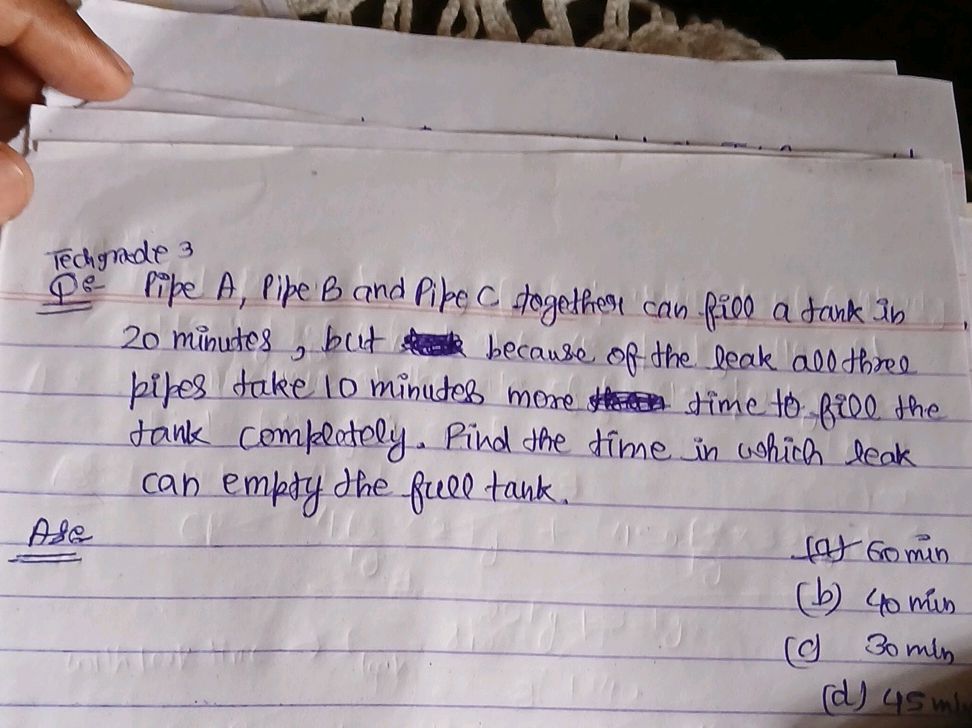 Techgrade 3
Qs- Pipe A, Pipe B and Pipe C together can fill a tank in
20 minutes, but because of the leak all three
pipes take 10 minutes more time to fill the
tank completely. Find the time in which leak
can empty the full tank.
Ans
(a) 60 min
(b) 40 min
(c) 30 min
(d) 45 min